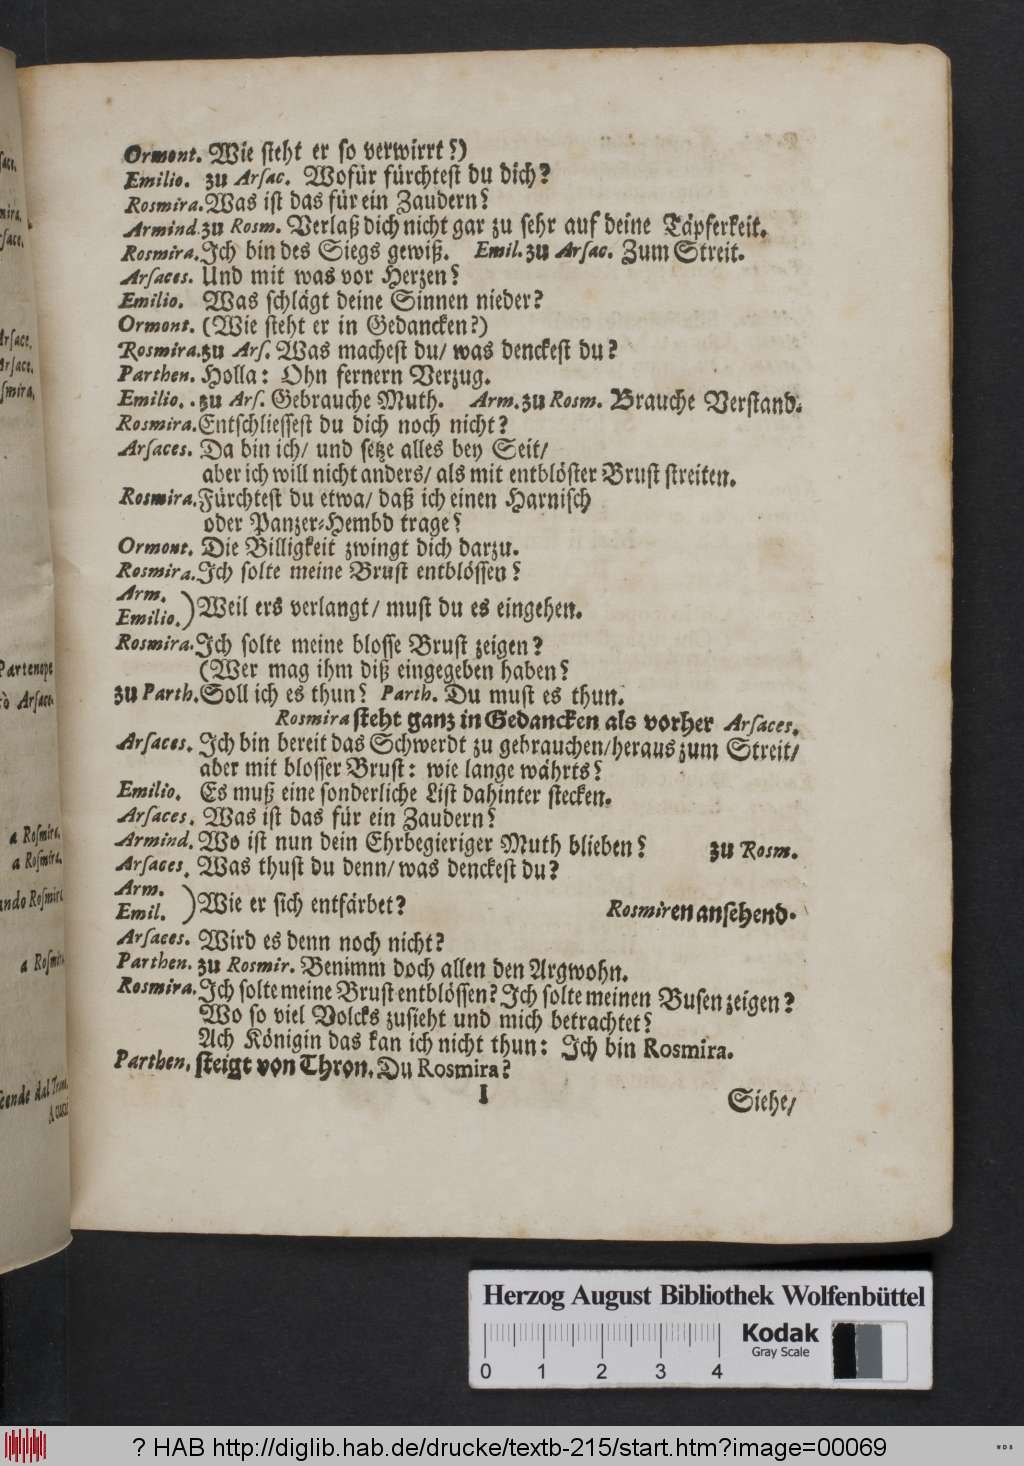 Ormont. Wie steht er so verwirrt?)
Emilio. zu Arsac. Wofür fürchtest du dich?
Rosmira. Was ist das für ein Zaudern?
Armind. zu Rosm. Verlaß dich nicht gar zu sehr auf deine Täpferkeit.
Rosmira. Ich bin des Siegs gewiß. Emil. zu Arsac. Zum Streit.
Arsaces. Und mit was vor Herzen?
Emilio. Was schlägt deine Sinnen nieder?
Ormont. (Wie steht er in Gedancken?)
Rosmira. zu Ars. Was machest du/ was denckest du?
Parthen. Holla: Ohn fernern Verzug.
Emilio. . zu Ars. Gebrauche Muth. Arm. zu Rosm. Brauche Verstand.
Rosmira. Entschliessest du dich noch nicht?
Arsaces. Da bin ich/ und setze alles bey Seit/
aber ich will nicht anders/ als mit entblöster Brust streiten.
Rosmira. Fürchtest du etwa/ daß ich einen Harnisch
oder Panzer-Hembd trage?
Ormont. Die Billigkeit zwingt dich darzu.
Rosmira. Ich solte meine Brust entblössen?
Arm.
Emilio. ) Weil ers verlangt/ must du es eingehen.
Rosmira. Ich solte meine blosse Brust zeigen?
(Wer mag ihm diß eingegeben haben?
zu Parth. Soll ich es thun? Parth. Du must es thun.
Rosmira steht ganz in Gedancken als vorher Arsaces.
Arsaces. Ich bin bereit das Schwerdt zu gebrauchen/ heraus zum Streit/
aber mit blosser Brust: wie lange währts?
Emilio. Es muß eine sonderliche List dahinter stecken.
Arsaces. Was ist das für ein Zaudern?
Armind. Wo ist nun dein Ehrbegieriger Muth blieben? zu Rosm.
Arsaces. Was thust du denn/ was denckest du?
Arm.
Emil. ) Wie er sich entfärbet? Rosmiren ansehend.
Arsaces. Wird es denn noch nicht?
Parthen. zu Rosmir. Benimm doch allen den Argwohn.
Rosmira. Ich solte meine Brust entblössen? Ich solte meinen Busen zeigen?
Wo so viel Volcks zusieht und mich betrachtet?
Ach Königin das kan ich nicht thun: Ich bin Rosmira.
Parthen. steigt von Thron. Du Rosmira?
I
Siehe/
Partenope
a Rosmira.
a Rosmira.
a Rosmira
Herzog August Bibliothek Wolfenbüttel
Kodak
Gray Scale
0 1 2 3 4
? HAB http://diglib.hab.de/drucke/textb-215/start.htm?image=00069